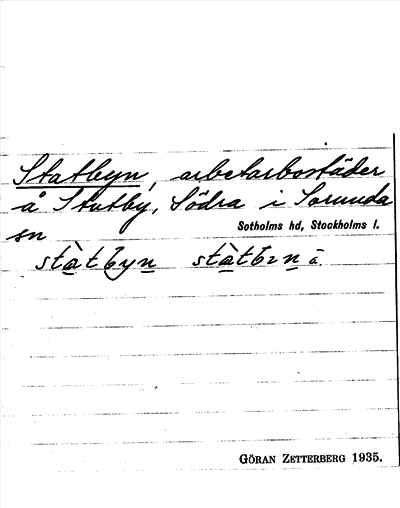 Statbyn, arbetarbostäder
å Statby, Södra i Sorunda
sn Sotholms hd, Stockholms l.
stàtbyn stàtbın à
GÖRAN ZETTERBERG 1935.